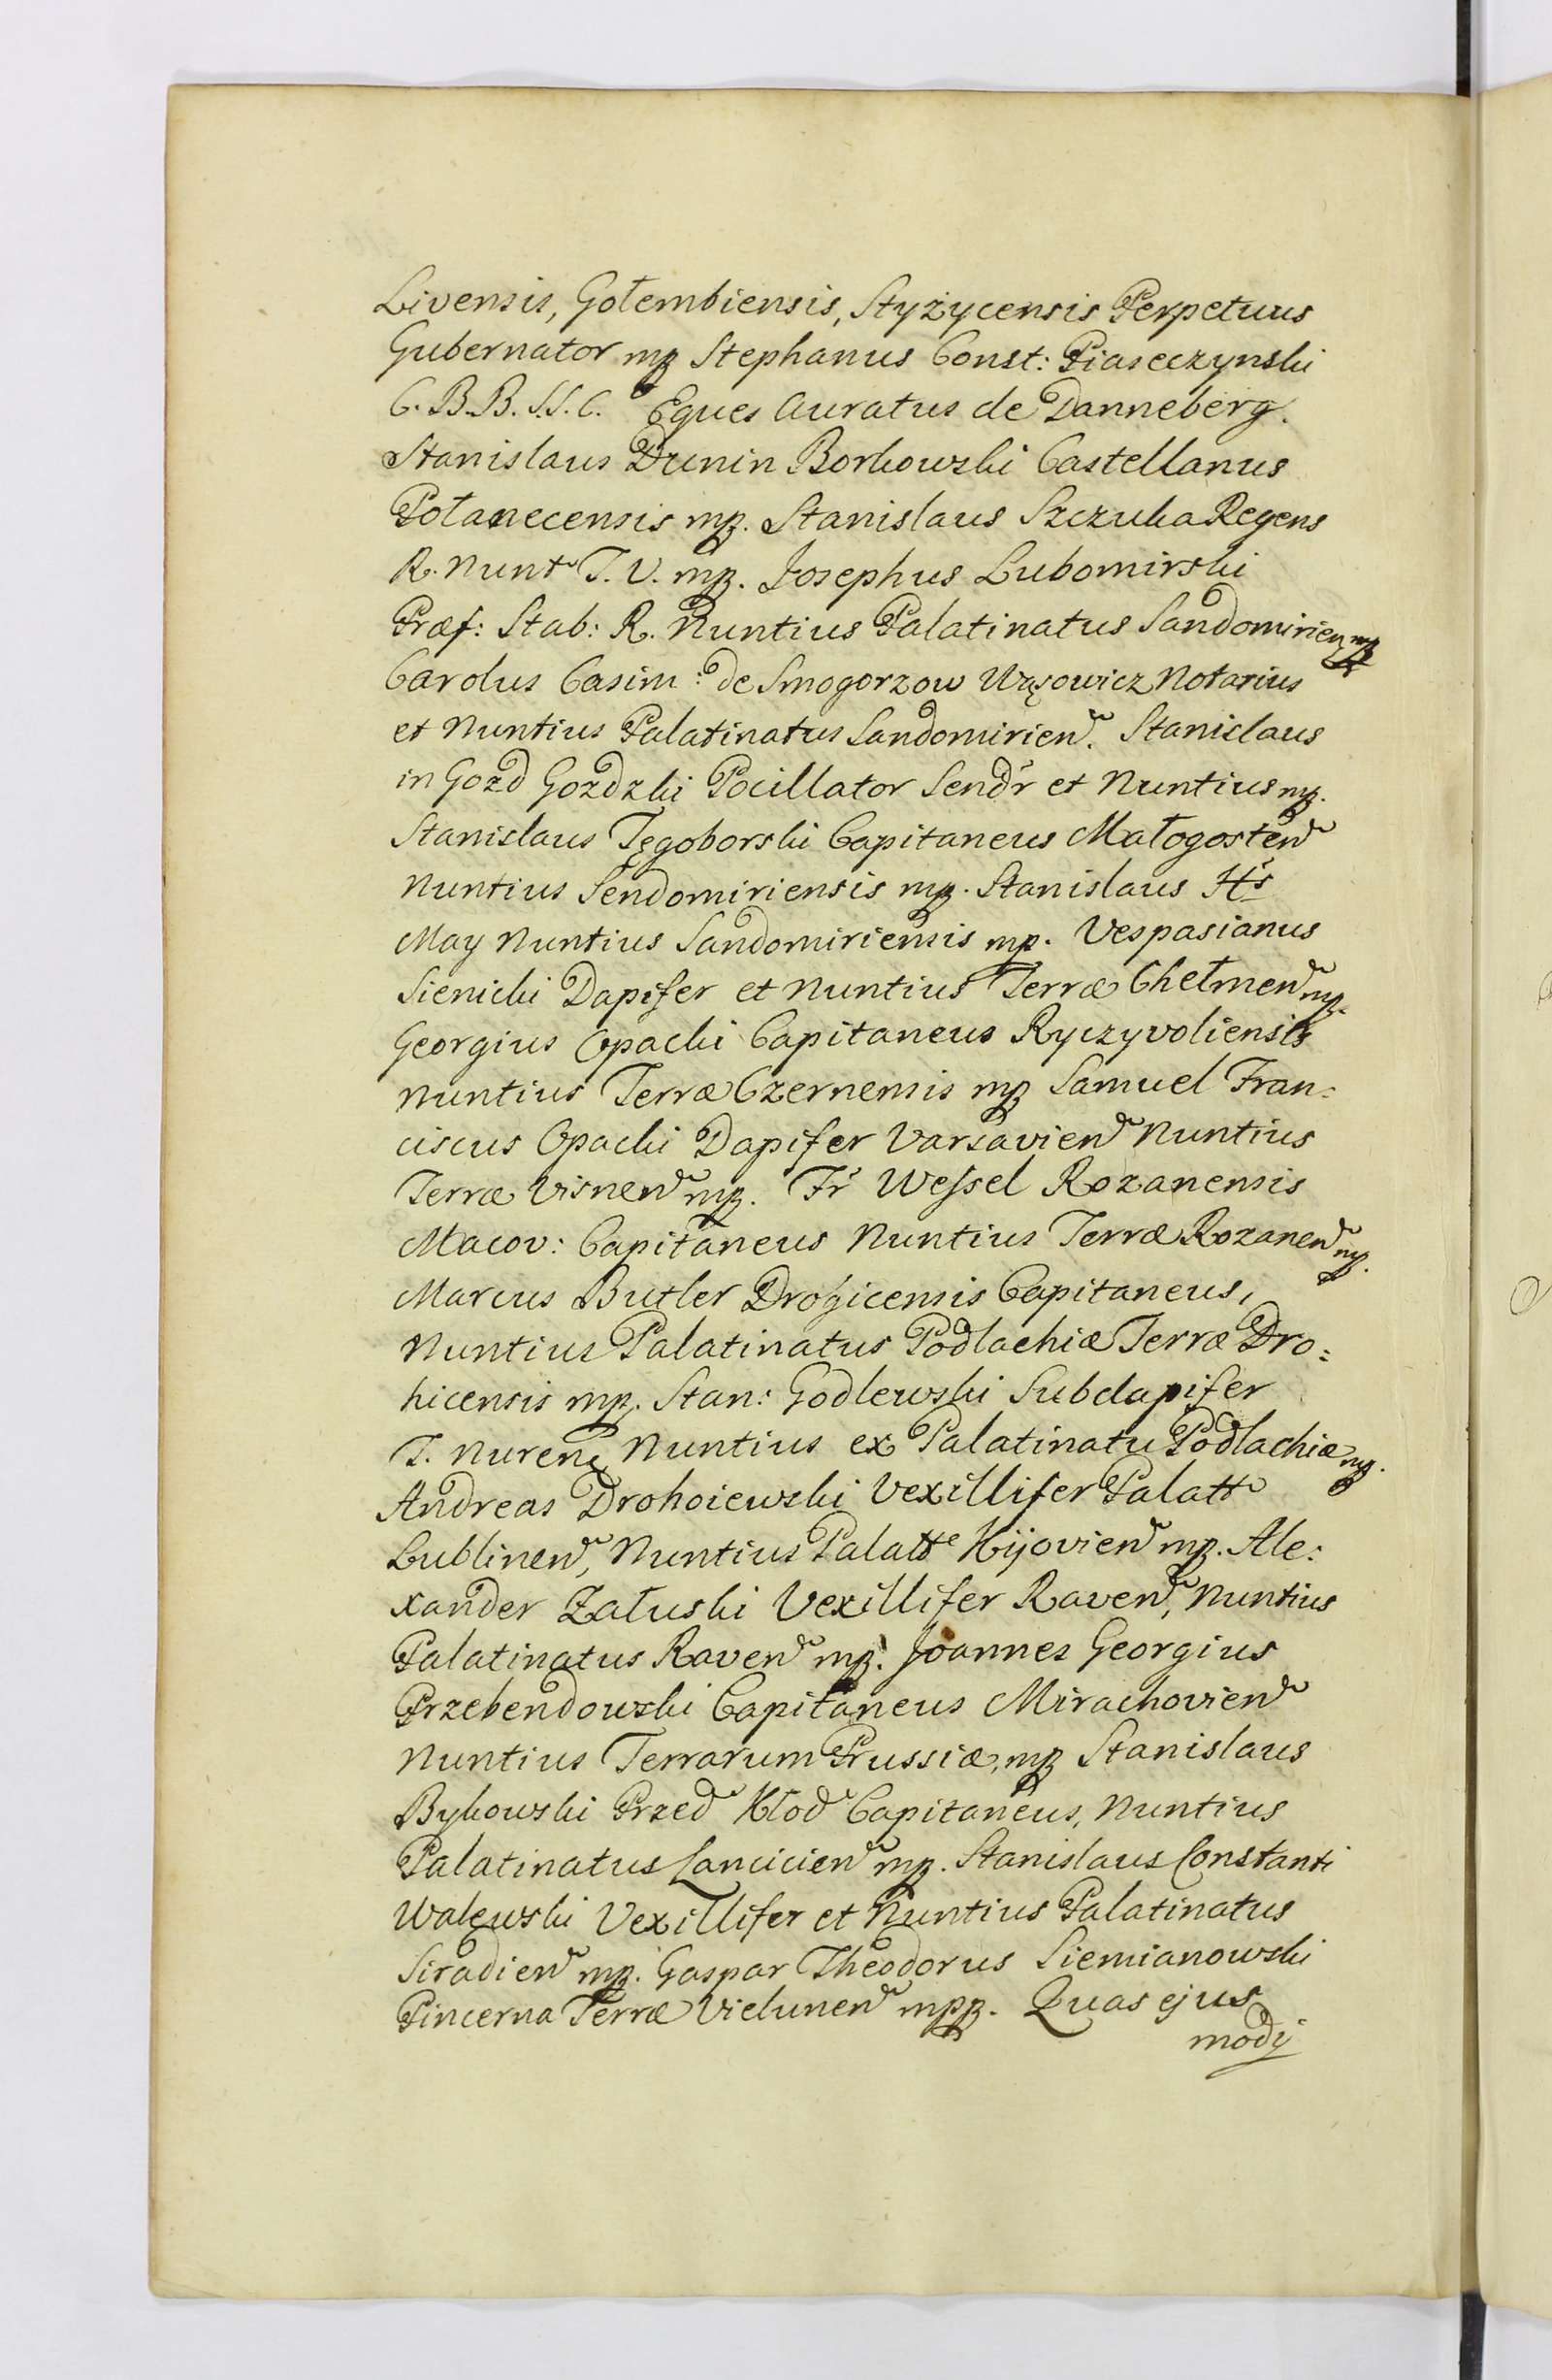 Livensis, Gołembiensis, Styżycensis Perpetuus
Gubernator mp Stephanus Const: Piaseczynski
C. B. B. S.S. C. Eques Auratus de Danneberg.
Stanislaus Dunin Borkowski Castellanus
Połanecensis mp. Stanislaus Szczuka Regens
R. Nunt T. V. mp. Josephus Lubomirski
Præf: Stab: R. Nuntius Palatinatus Sandomirien mp
Carolus Casim: de Smogorzow Wąsowicz Notarius
et Nuntius Palatinatus Sandomirien. Stanislaus
in Gozd Gozdzki Pocillator Sendr et Nuntius mp.
Stanislaus Tęgoborski Capitaneus Małogosten
Nuntius Sendomiriensis mp. Stanislaus Hs
May Nuntius Sandomiriensis mp. Vespasianus
Sienicki Dapifer et Nuntius Terræ Chełmen mp.
Georgius Opacki Capitaneus Ryczyvoliensis
Nuntius Terræ Czernensis mp Samuel Fran:
ciscus Opacki Dapifer Varsavien Nuntius
Terræ Visnen mp. Fr Wessel Rozanensis
Macov: Capitaneus Nuntius Terræ Rozanen mp.
Marcus Butler Drohicensis Capitaneus,
Nuntius Palatinatus Podlachiæ Terræ Dro:
hicensis mp. Stan: Godlewski Subdapifer
T. Nuren, Nuntius ex Palatinatu Podlachiæ mp.
Andreas Drohoiewski Vexillifer Palatt
Lublinen, Nuntius Palatt Kijovien mp. Ale:
xander Załuski Vexillifer Raven, Nuntius
Palatinatus Raven mp. Joannes Georgius
Przebendowski Capitaneus Mirachovien
Nuntius Terrarum Prussiæ, mp Stanislaus
Bykowski Przed Kłod Capitaneus, Nuntius
Palatinatus Lancicien mp. Stanislaus Constanti
Walewski Vexillifer et Nuntius Palatinatus
Siradien mp. Gaspar Theodorus Siemianowski
Pincerna Terræ Vielunen mpp. Quas ejus
modj